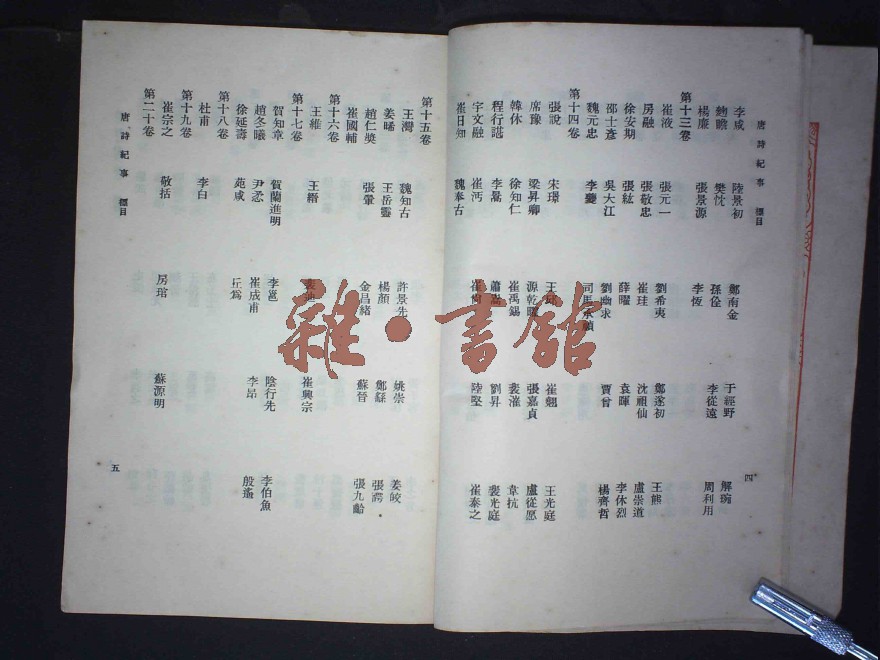 唐詩紀事 標目
李咸 陸景初 鄭南金 于經野 解琬
麴瞻 樊忱 孫佺 李從遠 周利用
楊廉 張景源 李恆
第十三卷
崔液 張元一 劉希夷 鄭遂初 王熊
房融 張敬忠 崔珪 沈祖仙 盧崇道
徐安期 張紘 薛曜 袁暉 李休烈
邵士彥 吳大江 劉幽求 賈曾 楊齊哲
魏元忠 李夔 司馬承禎
第十四卷
張說 宋璟 王丘 崔翹 王光庭
席豫 梁昇卿 源乾曜 張嘉貞 盧從愿
韓休 徐知仁 崔禹錫 裴漼 韋抗
程行諶 李暠 蕭嵩 劉昇 裴光庭
宇文融 崔沔 崔尙 陸堅 崔泰之
崔日知 魏奉古
四
第十五卷
王灣 魏知古 許景先 姚崇 姜皎
姜晞 王岳靈 楊顏 鄭繇 張諤
趙仁奬 張暈 金昌緒 蘇晉 張九齡
崔國輔
第十六卷
王維 王縉 裴迪 崔興宗
第十七卷
賀知章 賀蘭進明 李邕 陰行先 李伯魚
趙冬曦 尹悆 崔成甫 李昂 殷遙
徐延壽 苑咸 丘爲
第十八卷
杜甫 李白
第十九卷
崔宗之 敬括 房琯 蘇源明
第二十卷
唐詩紀事 標目
五
雜·書館